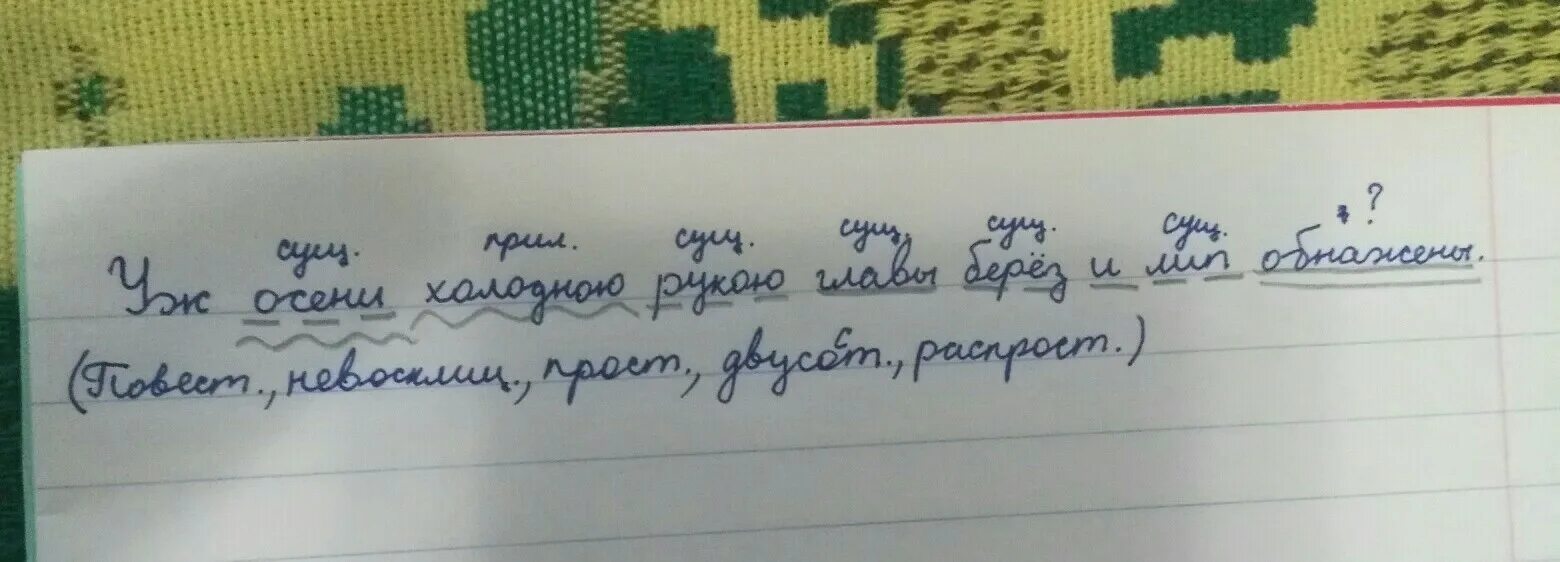 сущ. прил. сущ. сущ. сущ. сущ. ?
Уж осени холодною рукою главы берёз и лип обнажены.
(Повест., невосклиц., прост., двусост., распрост.)